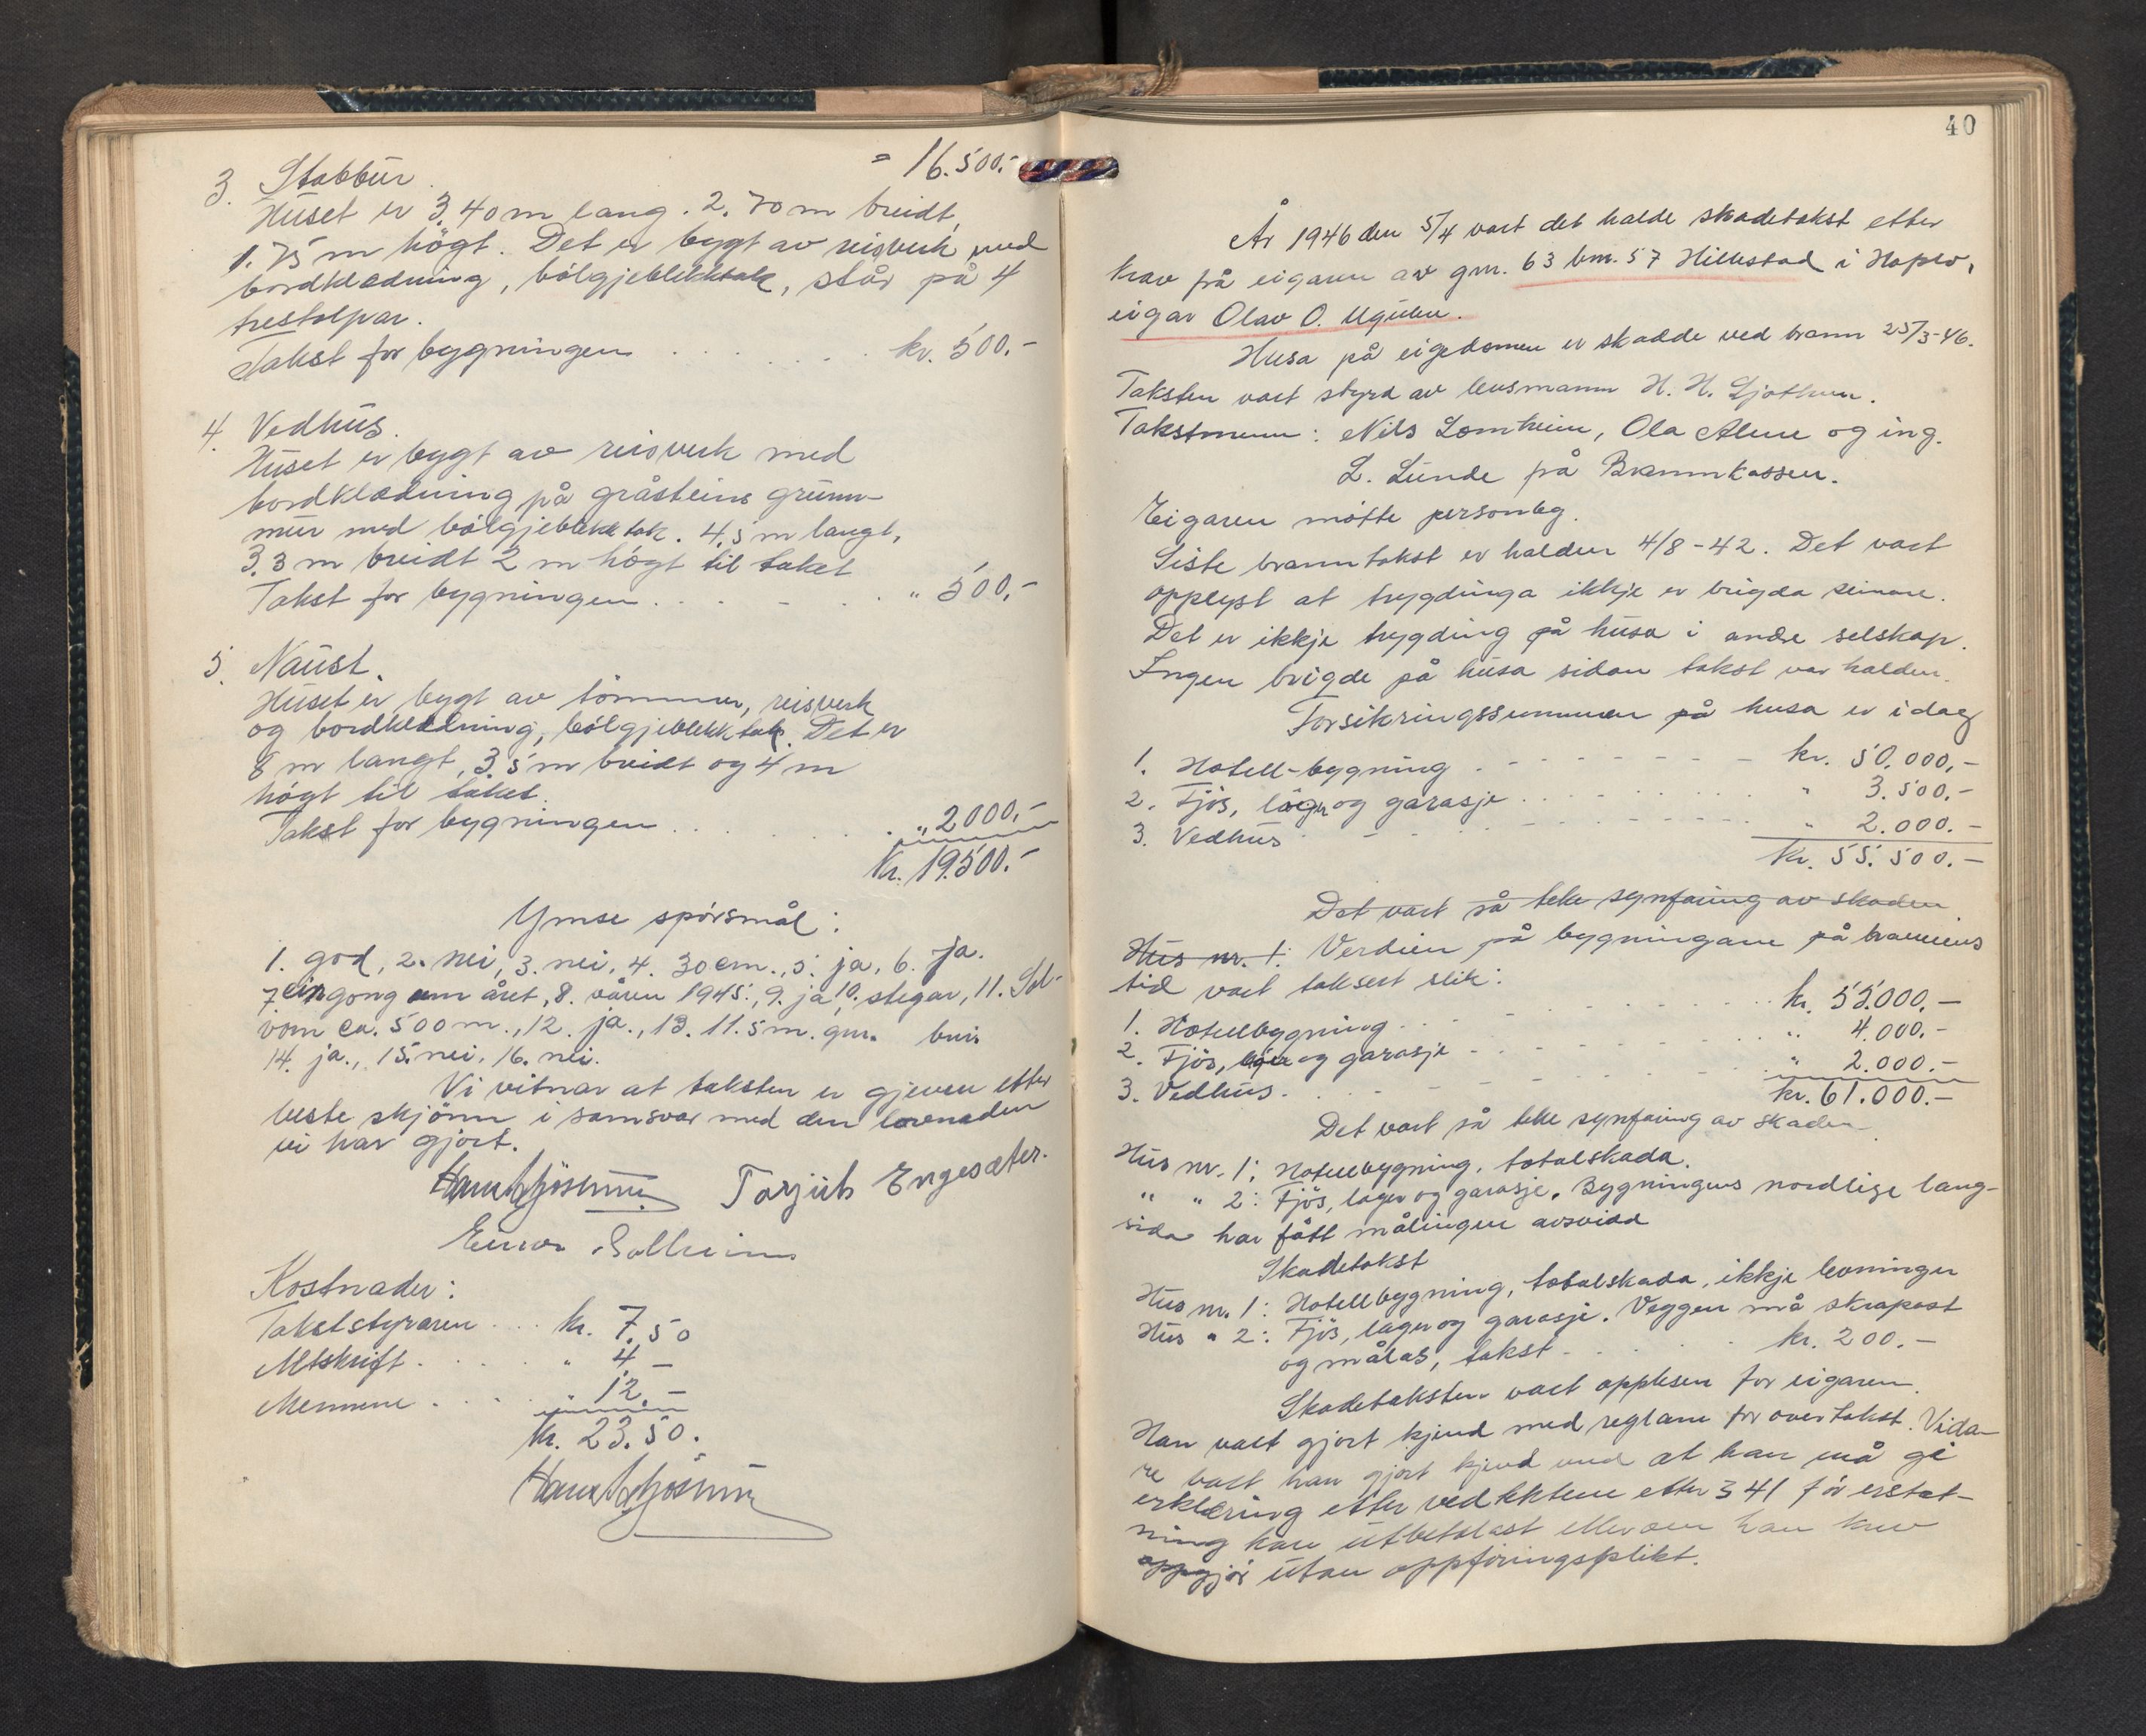 = 16.500.-
3. Stabbur.
Huset er 3.40 m lang. 2.70 m breidt,
1.75 m högt. Det er bygt av reisverk med
bordklædning, bölgjeblekktak, står på 4
trestolpar.
Takst for bygningen . . . . . kr. 500.-
4. Vedhus.
Huset er bygt av reisverk med
bordklædning på gråsteins grunn-
mur med bölgjeblekktak. 4,5 m langt,
3.3 m breidt 2 m högt til taket
Takst for bygningen . . . . . " 500,-
5. Naust.
Huset er bygt av tömmer, reisverk
og bordklædning, bölgjeblekktak. Det er
8 m langt, 3,5 m breidt og 4 m
högt til taket.
Takst for bygningen . . . . . " 2000,-
Kr. 19.500.-
Ymse spörsmål:
1. god, 2. nei, 3. nei, 4. 30 cm., 5. ja, 6. ja.
7. ein gong um året, 8. våren 1945., 9. ja, 10. stegar, 11. Sol-
vorn ca. 500 m., 12. ja., 13. 11.5 m. gnr. bnr.
14. ja., 15. nei, 16. nei.
Vi vitnar at taksten er gjeven etter
beste skjönn i samsvar med den lovnaden
vi har gjort.
Torjuls Engesæter.
Einar Solheim
Kostnader:
Takststyraren . . . kr. 7.50
Utskrift . . . . . " 4.-
Mennene . . . . " 12.-
Kr. 23.50.
40
År 1946 den 5/4 vart det halde skadetakst etter
krav frå eigaren av gnr. 63 bnr. 57 Hillestad i Haslo,
eigar Olav O. Ugulen.
Husa på eigedomen er skadde ved brann 25/3-46.
Taksten vart styrd av lensmann H. H. Sjöthun.
Takstmenn: Nils Lomheim, Ola Alme og ing.
L. Lunde frå Brannkassen.
Eigaren mötte personleg.
Siste branntakst er halden 4/8-42. Det vart
opplyst at trygdinga ikkje er brigda seinare.
Det er ikkje trygding på husa i andre selskap.
Ingen brigde på husa sidan takst var halden.
Forsikringssummen på husa er idag
1. Hotell-bygning . . . . . kr. 50.000,-
2. Fjös, lager og garasje . . . . . " 3.500,-
3. Vedhus . . . . . " 2.000.-
Kr. 55.500.-
Det vart så teke synfaring av skaden.
Hus nr. 1: Verdien på bygningane på brannens
tid vart taksert slik:
1. Hotellbygning . . . . . kr. 55.000,-
2. Fjös, lager og garasje . . . . . " 4.000.-
3. Vedhus . . . . . " 2.000.-
kr. 61.000.-
Det vart så teke synfaring av skaden
Hus nr. 1: Hotellbygning, totalskada.
" " 2: Fjös, lager og garasje. Bygningens nordlige lang-
sida har fått målingen avsvidd
Skadetakst
Hus nr. 1: Hotellbygning, totalskada, ikkje levninger
Hus " 2: Fjös, lager og garasje. Veggen må skrapast
og målas, takst . . . . . kr. 200.-
Skadetaksten vart opplesen for eigaren.
Han vart gjort kjend med reglane for overtakst. Vida-
re vart han gjort kjend med at han må gi
erklæring etter vedtektene etter § 41 för erstat-
ning kan utbetalast eller om han krev
oppgjör utan oppföringsplikt.